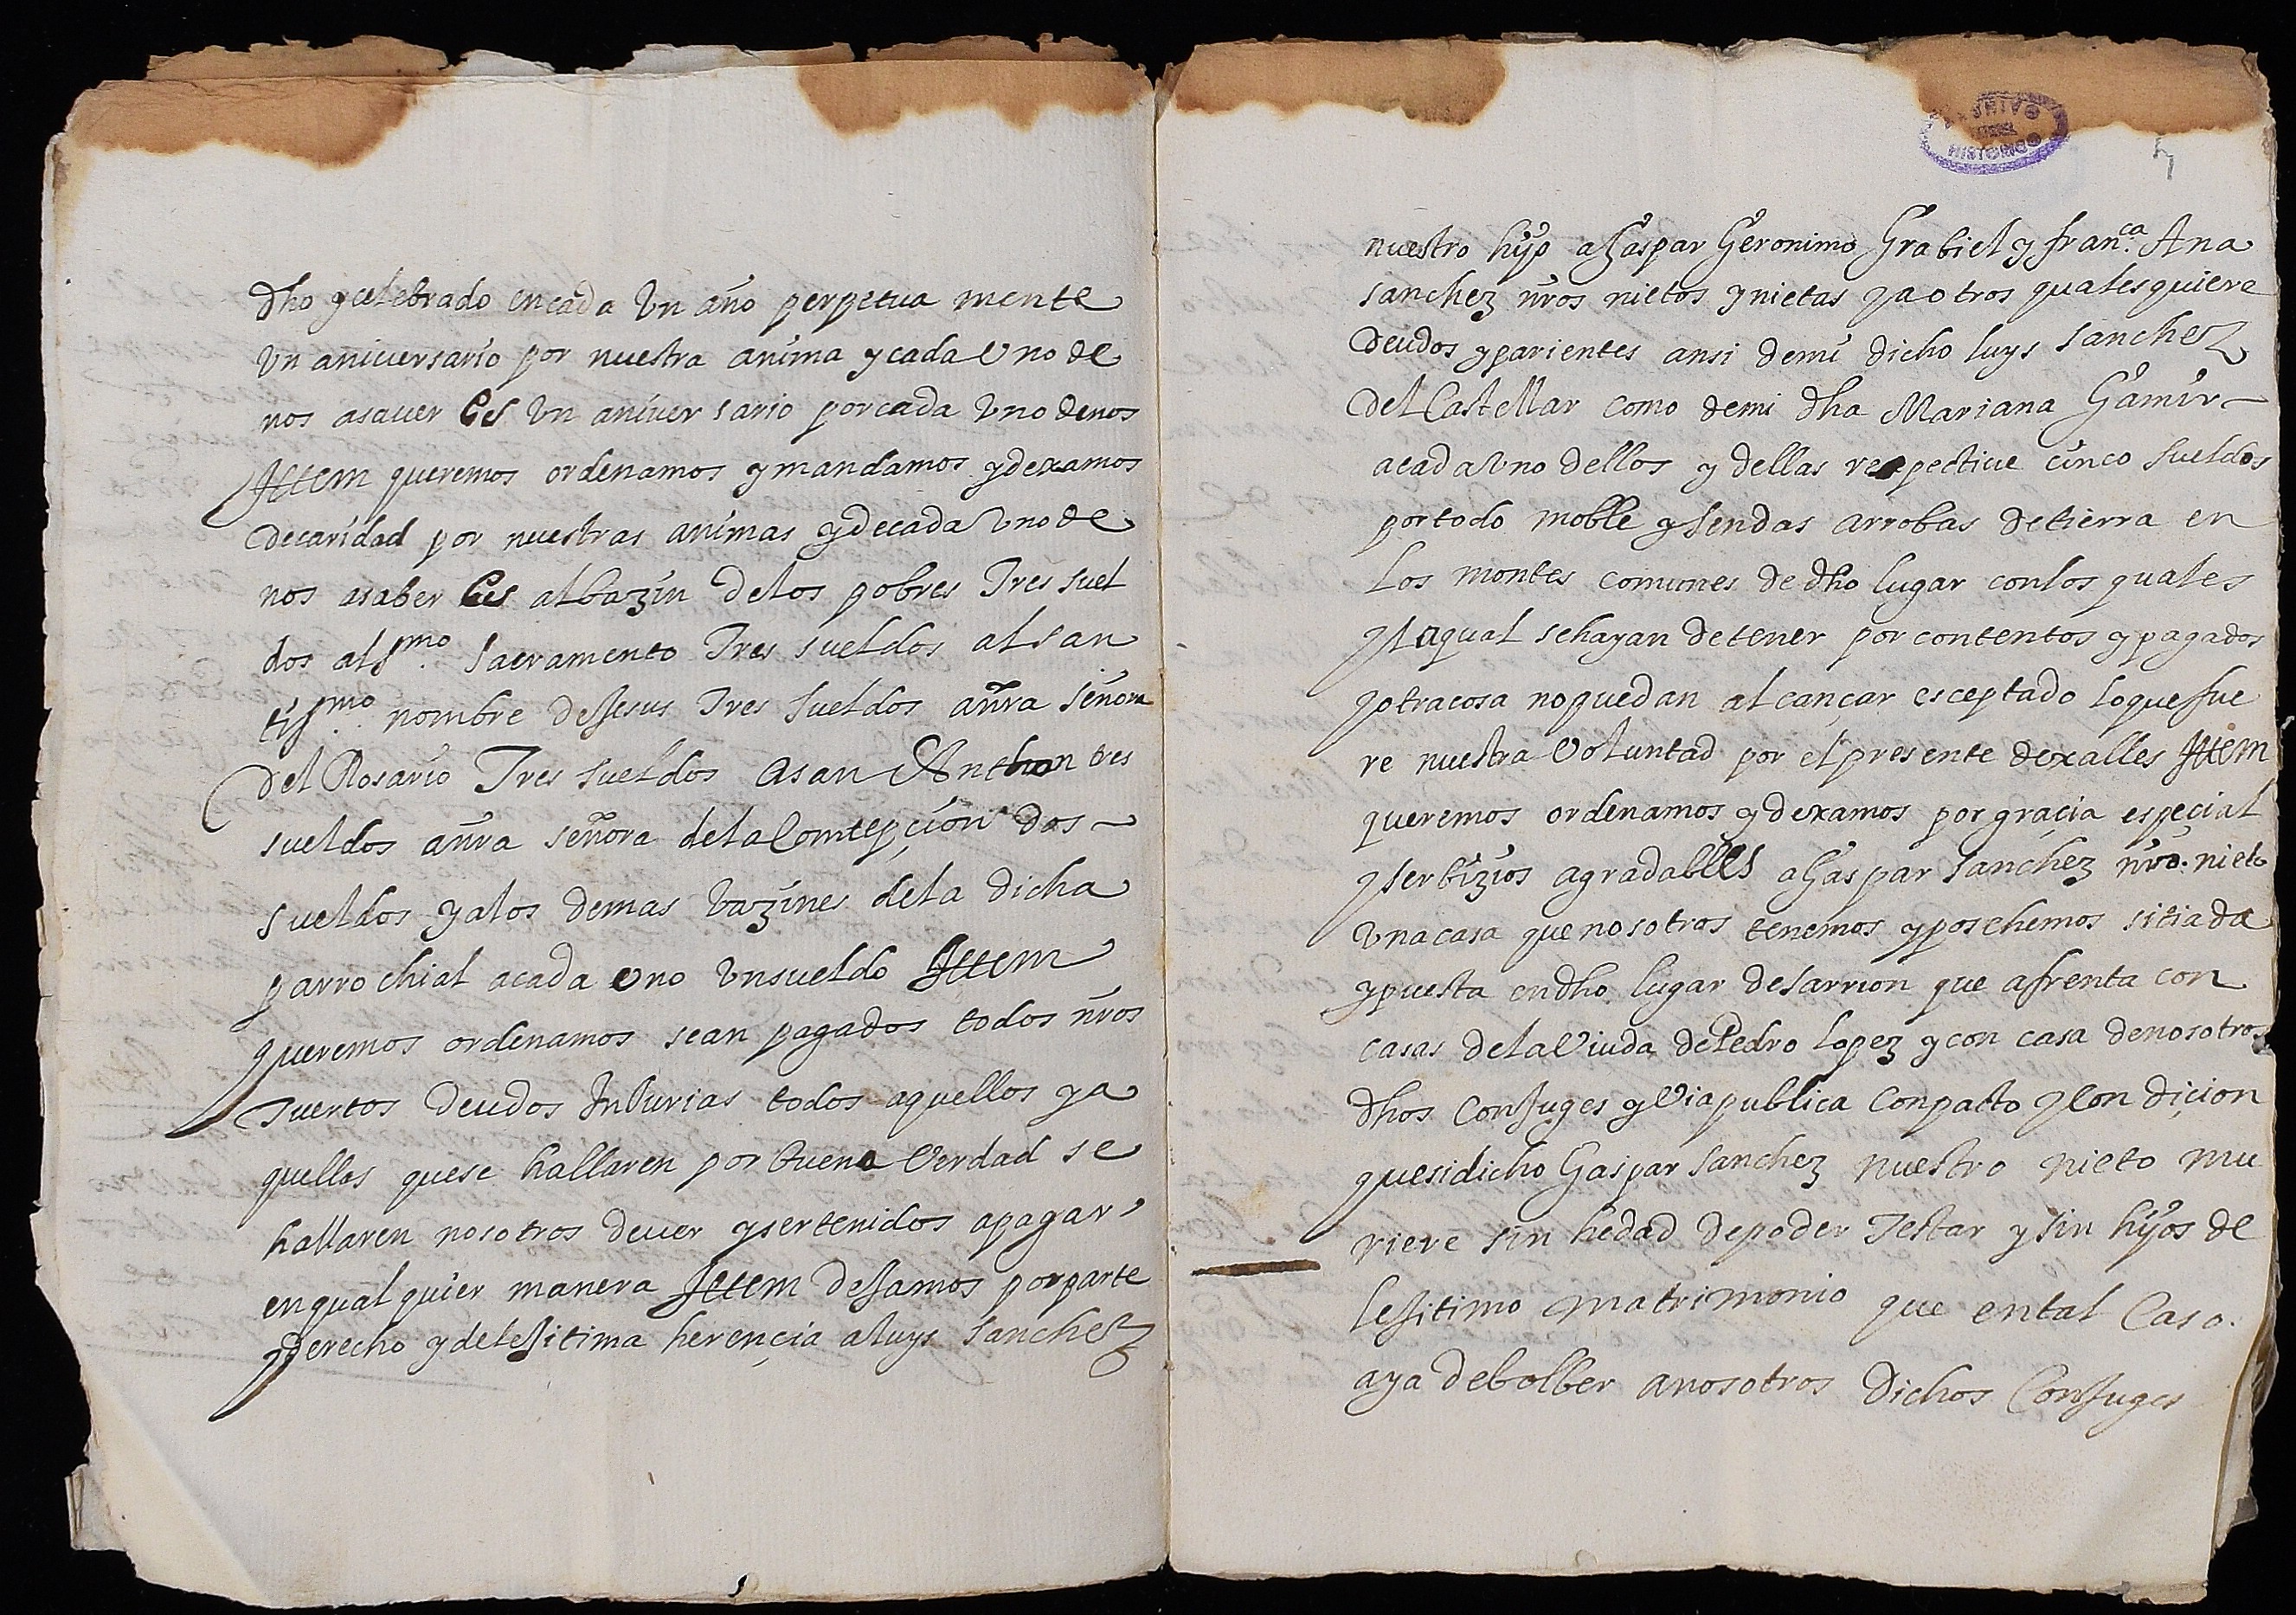 dho y celebrado en cada Un año perpetua mente
Un aniuersario por nuestra anima y cada Uno de
nos asauer Es Un aniuer sario por cada Uno de nos
Ittem queremos ordenamos y mandamos y dexamos
de caridad por nuestras animas y de cada Uno de
nos asaber Es al bazin de los pobres Tres suel
dos al smo. sacramento Tres sueldos al san
tissmo. nombre de Jesus Tres sueldos a nra señora
del Rosario Tres sueldos a san Anthon tres
sueldos a nra señora de la Comcepçion dos
sueldos y a los demas bazines de la dicha
parrochial a cada uno Un sueldo Ittem
queremos ordenamos sean pagados todos nros
Tuertos deudos Injurias todos aquellos y a
quellas que se hallaren por buena Verdad se
hallaren nosotros deuer y ser tenidos a pagar
en qual quier manera Ittem dejamos por parte
y derecho y de lejitima herençia a luys sanchez
ARCHIVO
HISTORICO
5
nuestro hijo a Gaspar Geronimo Grabiel y franca. Ana
sanchez nros nietos y nietas y a otros quales quiere
deudos y parientes ansi de mi dicho luys sanchez
del Castellar como de mi dha Mariana Gamir
a cada Uno dellos y dellas respectiue cinco sueldos
por todo moble y sendas arrobas de tierra en
los montes comunes de dho lugar con los quales
y la qual se hayan de tener por contentos y pagados
y otra cosa no puedan alcançar esceptado lo que fue
re nuestra Voluntad por el presente dexalles Ittem
queremos ordenamos y dexamos por graçia especial
y serbizios agradables a Gaspar sanchez nro. nieto
Una casa que nosotros tenemos y posehemos sitiada
y puesta en dho lugar de sarrion que afrenta con
casas de la Viuda de Pedro lopez y con casa de nosotros
dhos Conjuges y Via publica Con pacto y Con diçion
que si dicho Gaspar sanchez nuestro nieto mu
riere sin hedad de poder Testar y sin hijos de
lejitimo matrimonio que en tal Caso.
aya de bolber a nosotros dichos Conjuges